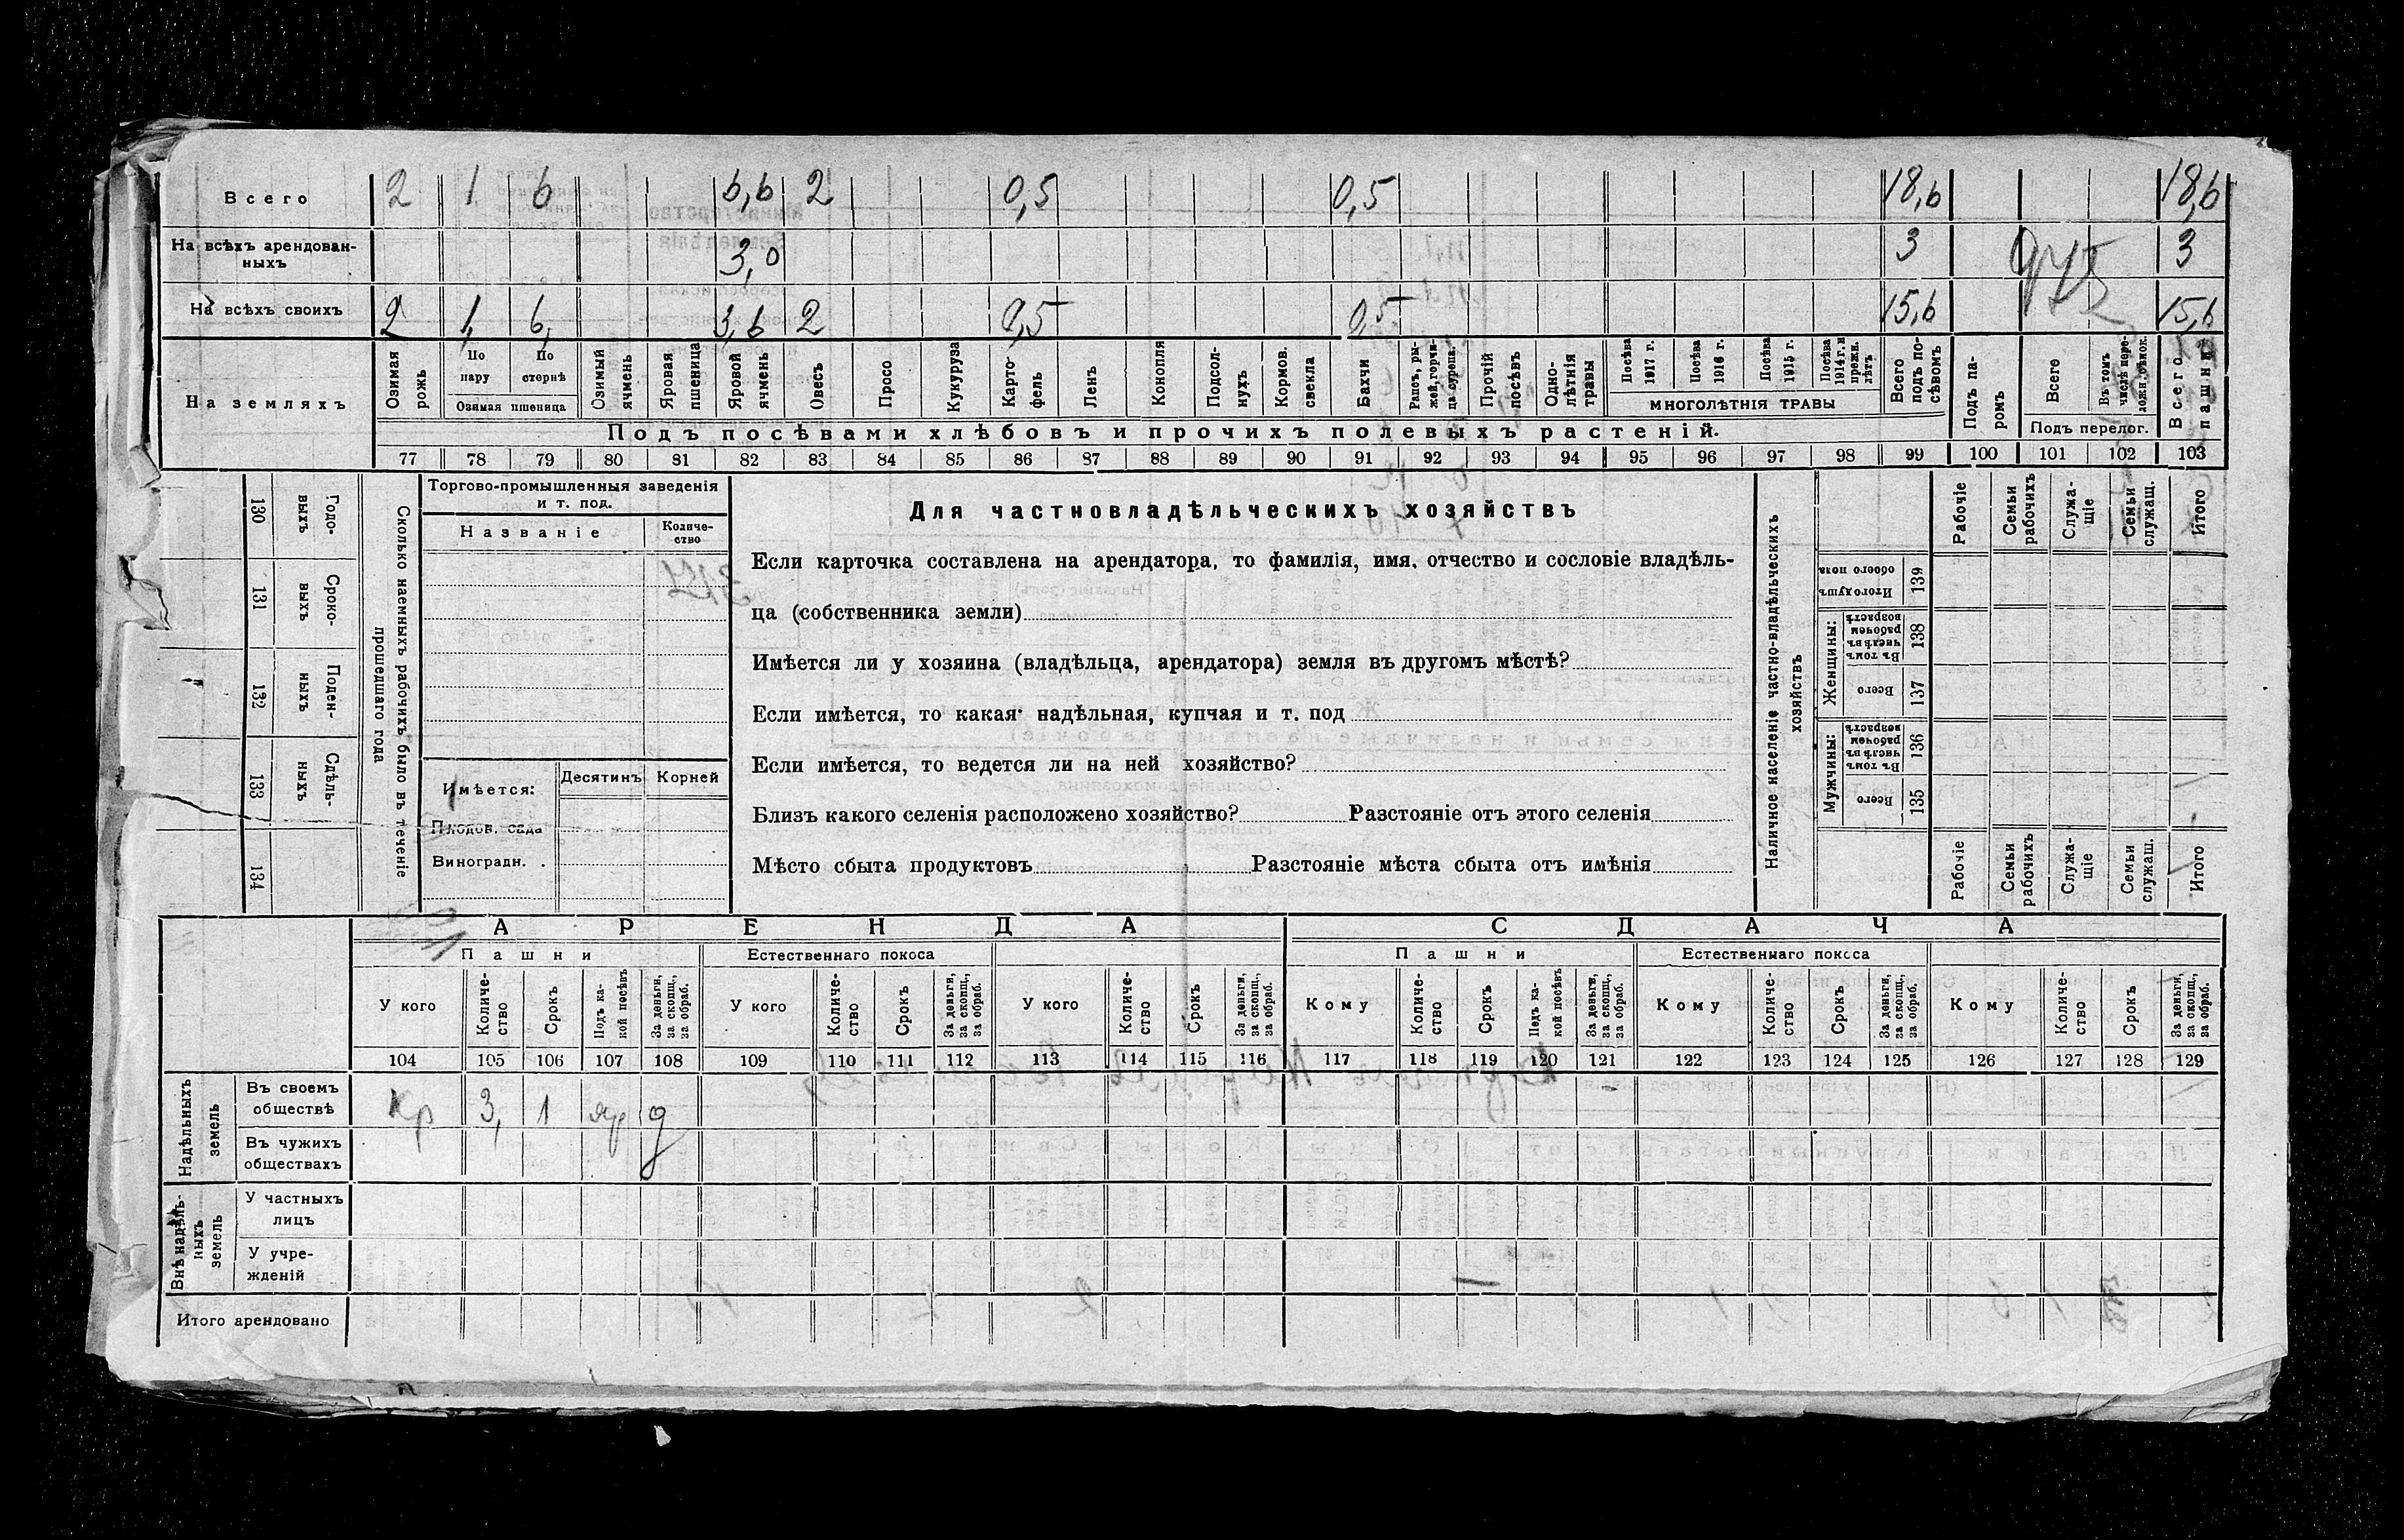 Всего 2 1 6 6,6 2 0,5 0,5 18,6 18,6
На всѣхъ арендован-
ныхъ 3,0 3 3
На всѣхъ своихъ 2 1, 6, 3,6 2 0,5 0,5 15,6 15,6
На земляхъ
Озимая рожь
По пару
По стернѣ
Озимая пшеница
Озимый ячмень
Яровая пшеница
Яровой ячмень
Овесъ
Просо
Кукуруза
Карто-
фель
Ленъ
Конопля
Подсол-
нухъ
Кормов.
свекла
Бахчи
Рапсъ, ры-
жей, горчи-
ца сурепа.
Прочій
посѣвъ
Одно-
лѣтнія
травы
Посѣва
1917 г.
Посѣва
1916 г.
Посѣва
1915 г.
Посѣва
1914 г. и
прежн.
лѣтъ
МНОГОЛѢТНІЯ ТРАВЫ
Всего
подъ по-
сѣвомъ
Подъ па-
ромъ
Всего
Въ томъ
числѣ пере-
Подъ перелог.
Всего
пашни
Подъ посѣвами хлѣбовъ и прочихъ полевыхъ растеній.
77 78 79 80 81 82 83 84 85 86 87 88 89 90 91 92 93 94 95 96 97 98 99 100 101 102 103
130 Годо-
выхъ
131 Сроко-
выхъ
132 Поден-
ныхъ
133 Сдѣль-
ныхъ
134
Сколько наемныхъ рабочихъ было въ теченіе
прошедшаго года
Торгово-промышленныя заведенія
и т. под.
Названіе
Количе-
ство
Имѣется:
Десятинъ Корней
Плодов. сада
Виноградн. .
Для частновладѣльческихъ хозяйствъ
Если карточка составлена на арендатора, то фамилія, имя, отчество и сословіе владѣль-
ца (собственника земли)
Имѣется ли у хозяина (владѣльца, арендатора) земля въ другомъ мѣстѣ?
Если имѣется, то какая: надѣльная, купчая и т. под
Если имѣется, то ведется ли на ней хозяйство?
Близъ какого селенія расположено хозяйство? Разстояніе отъ этого селенія
Мѣсто сбыта продуктовъ Разстояніе мѣста сбыта отъ имѣнія
Наличное населеніе частно-владѣльческихъ
хозяйствъ
Рабочіе
Семьи
рабочихъ
Служа-
щіе
Семьи
служащ.
Итого
Итого душъ
обоего пола
139
Женщины:
Въ томъ
числѣ въ
рабочем
возрастѣ
138
Всего
137
Мужчины:
Въ томъ
числѣ въ
рабочем
возрастѣ
136
Всего
135
Рабочіе
Семьи
рабочихъ
Служа-
щіе
Семьи
служащ.
Итого
АРЕНДА СДАЧА
Пашни Естественнаго покоса Пашни Естественнаго покоса
У кого
Количе-
ство
Срокъ
Подъ ка-
кой посѣвъ
За деньги,
за скопщ.,
за обраб.
У кого
Количе-
ство
Срокъ
За деньги,
за скопщ.,
за обраб.
У кого
Количе-
ство
Срокъ
За деньги,
за скопщ.,
за обраб.
Кому
Количе-
ство
Срокъ
Подъ ка-
кой посѣвъ
За деньги,
за скопщ.,
за обраб.
Кому
Количе-
ство
Срокъ
За деньги,
за скопщ.,
за обраб.
Кому
Количе-
ство
Срокъ
За деньги,
за скопщ.,
за обраб.
104 105 106 107 108 109 110 111 112 113 114 115 116 117 118 119 120 121 122 123 124 125 126 127 128 129
Надѣльныхъ
земель
Въ своемъ
обществѣ
Кр 3, 1 яр д
Въ чужихъ
обществахъ
Внѣ надѣль-
ныхъ
земель
У частныхъ
лицъ
У учре-
жденій
Итого арендовано